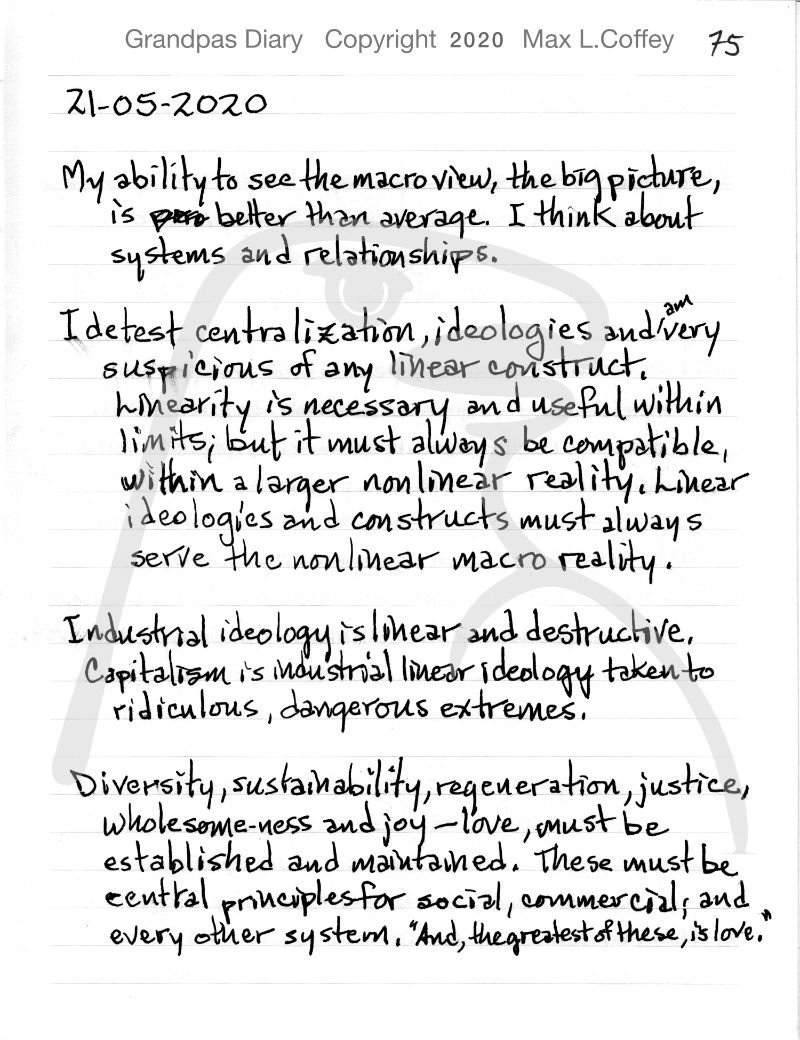 Grandpas Diary Copyright 2020 Max L.Coffey 75
21-05-2020
My ability to see the macro view, the big picture,
is better than average. I think about
systems and relationships.
I detest centralization, ideologies and am very
suspicious of any linear construct.
Linearity is necessary and useful within
limits; but it must always be compatible,
within a larger nonlinear reality. Linear
ideologies and constructs must always
serve the nonlinear macro reality.
Industrial ideology is linear and destructive.
Capitalism is industrial linear ideology taken to
ridiculous, dangerous extremes.
Diversity, sustainability, regeneration, justice,
wholesome-ness and joy – love, must be
established and maintained. These must be
central principles for social, commercial; and
every other system. "And, the greatest of these, is love."